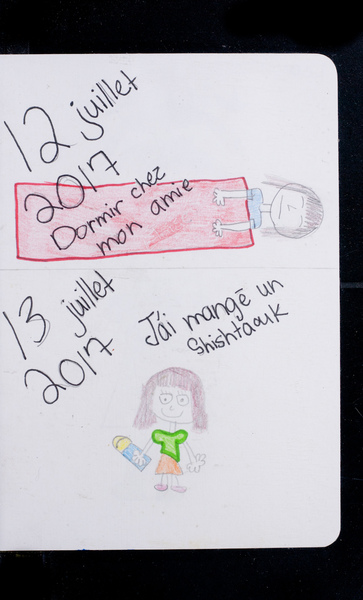 12 juillet
2017
Dormir chez
mon amie
13 juillet
2017
J'ái mangé un
Shishtaouk